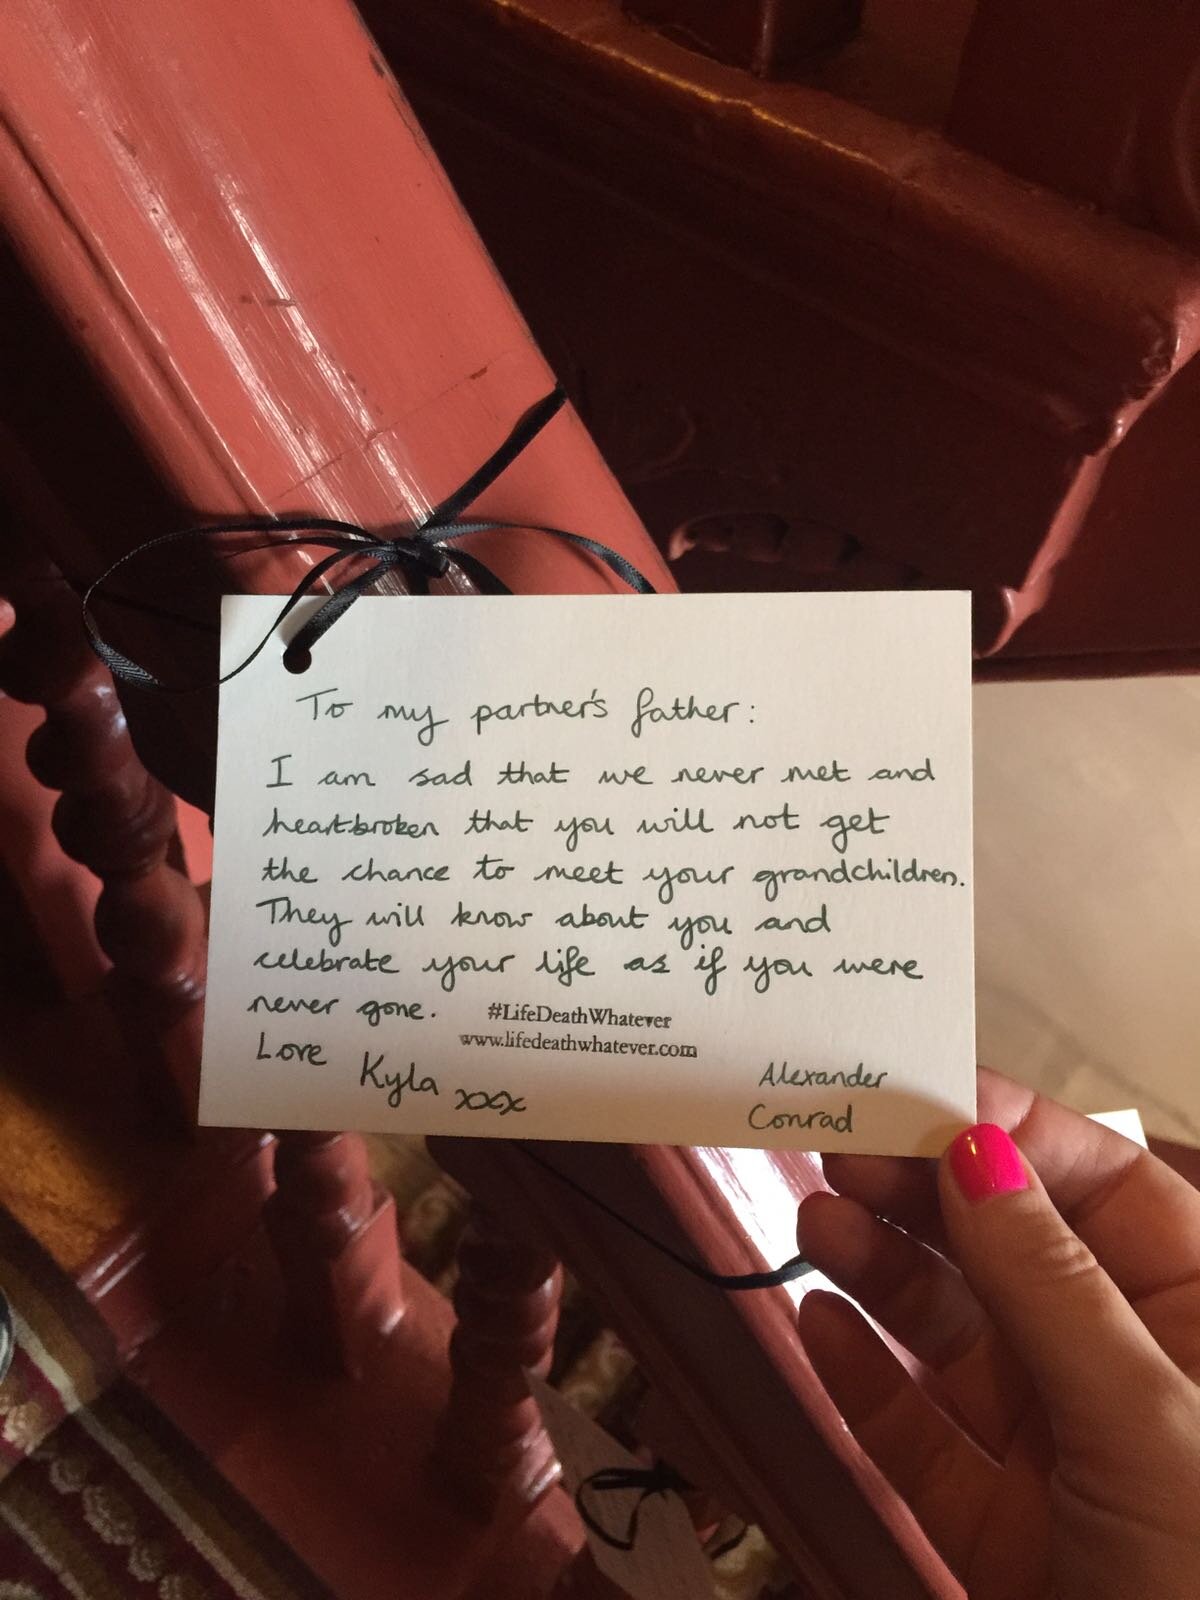 To my partner's father:
I am sad that we never met and
heartbroken that you will not get
the chance to meet your grandchildren.
They will know about you and
celebrate your life as if you were
never gone.
#LifeDeathWhatever
www.lifedeathwhatever.com
Love Kyla xxx
Alexander
Conrad